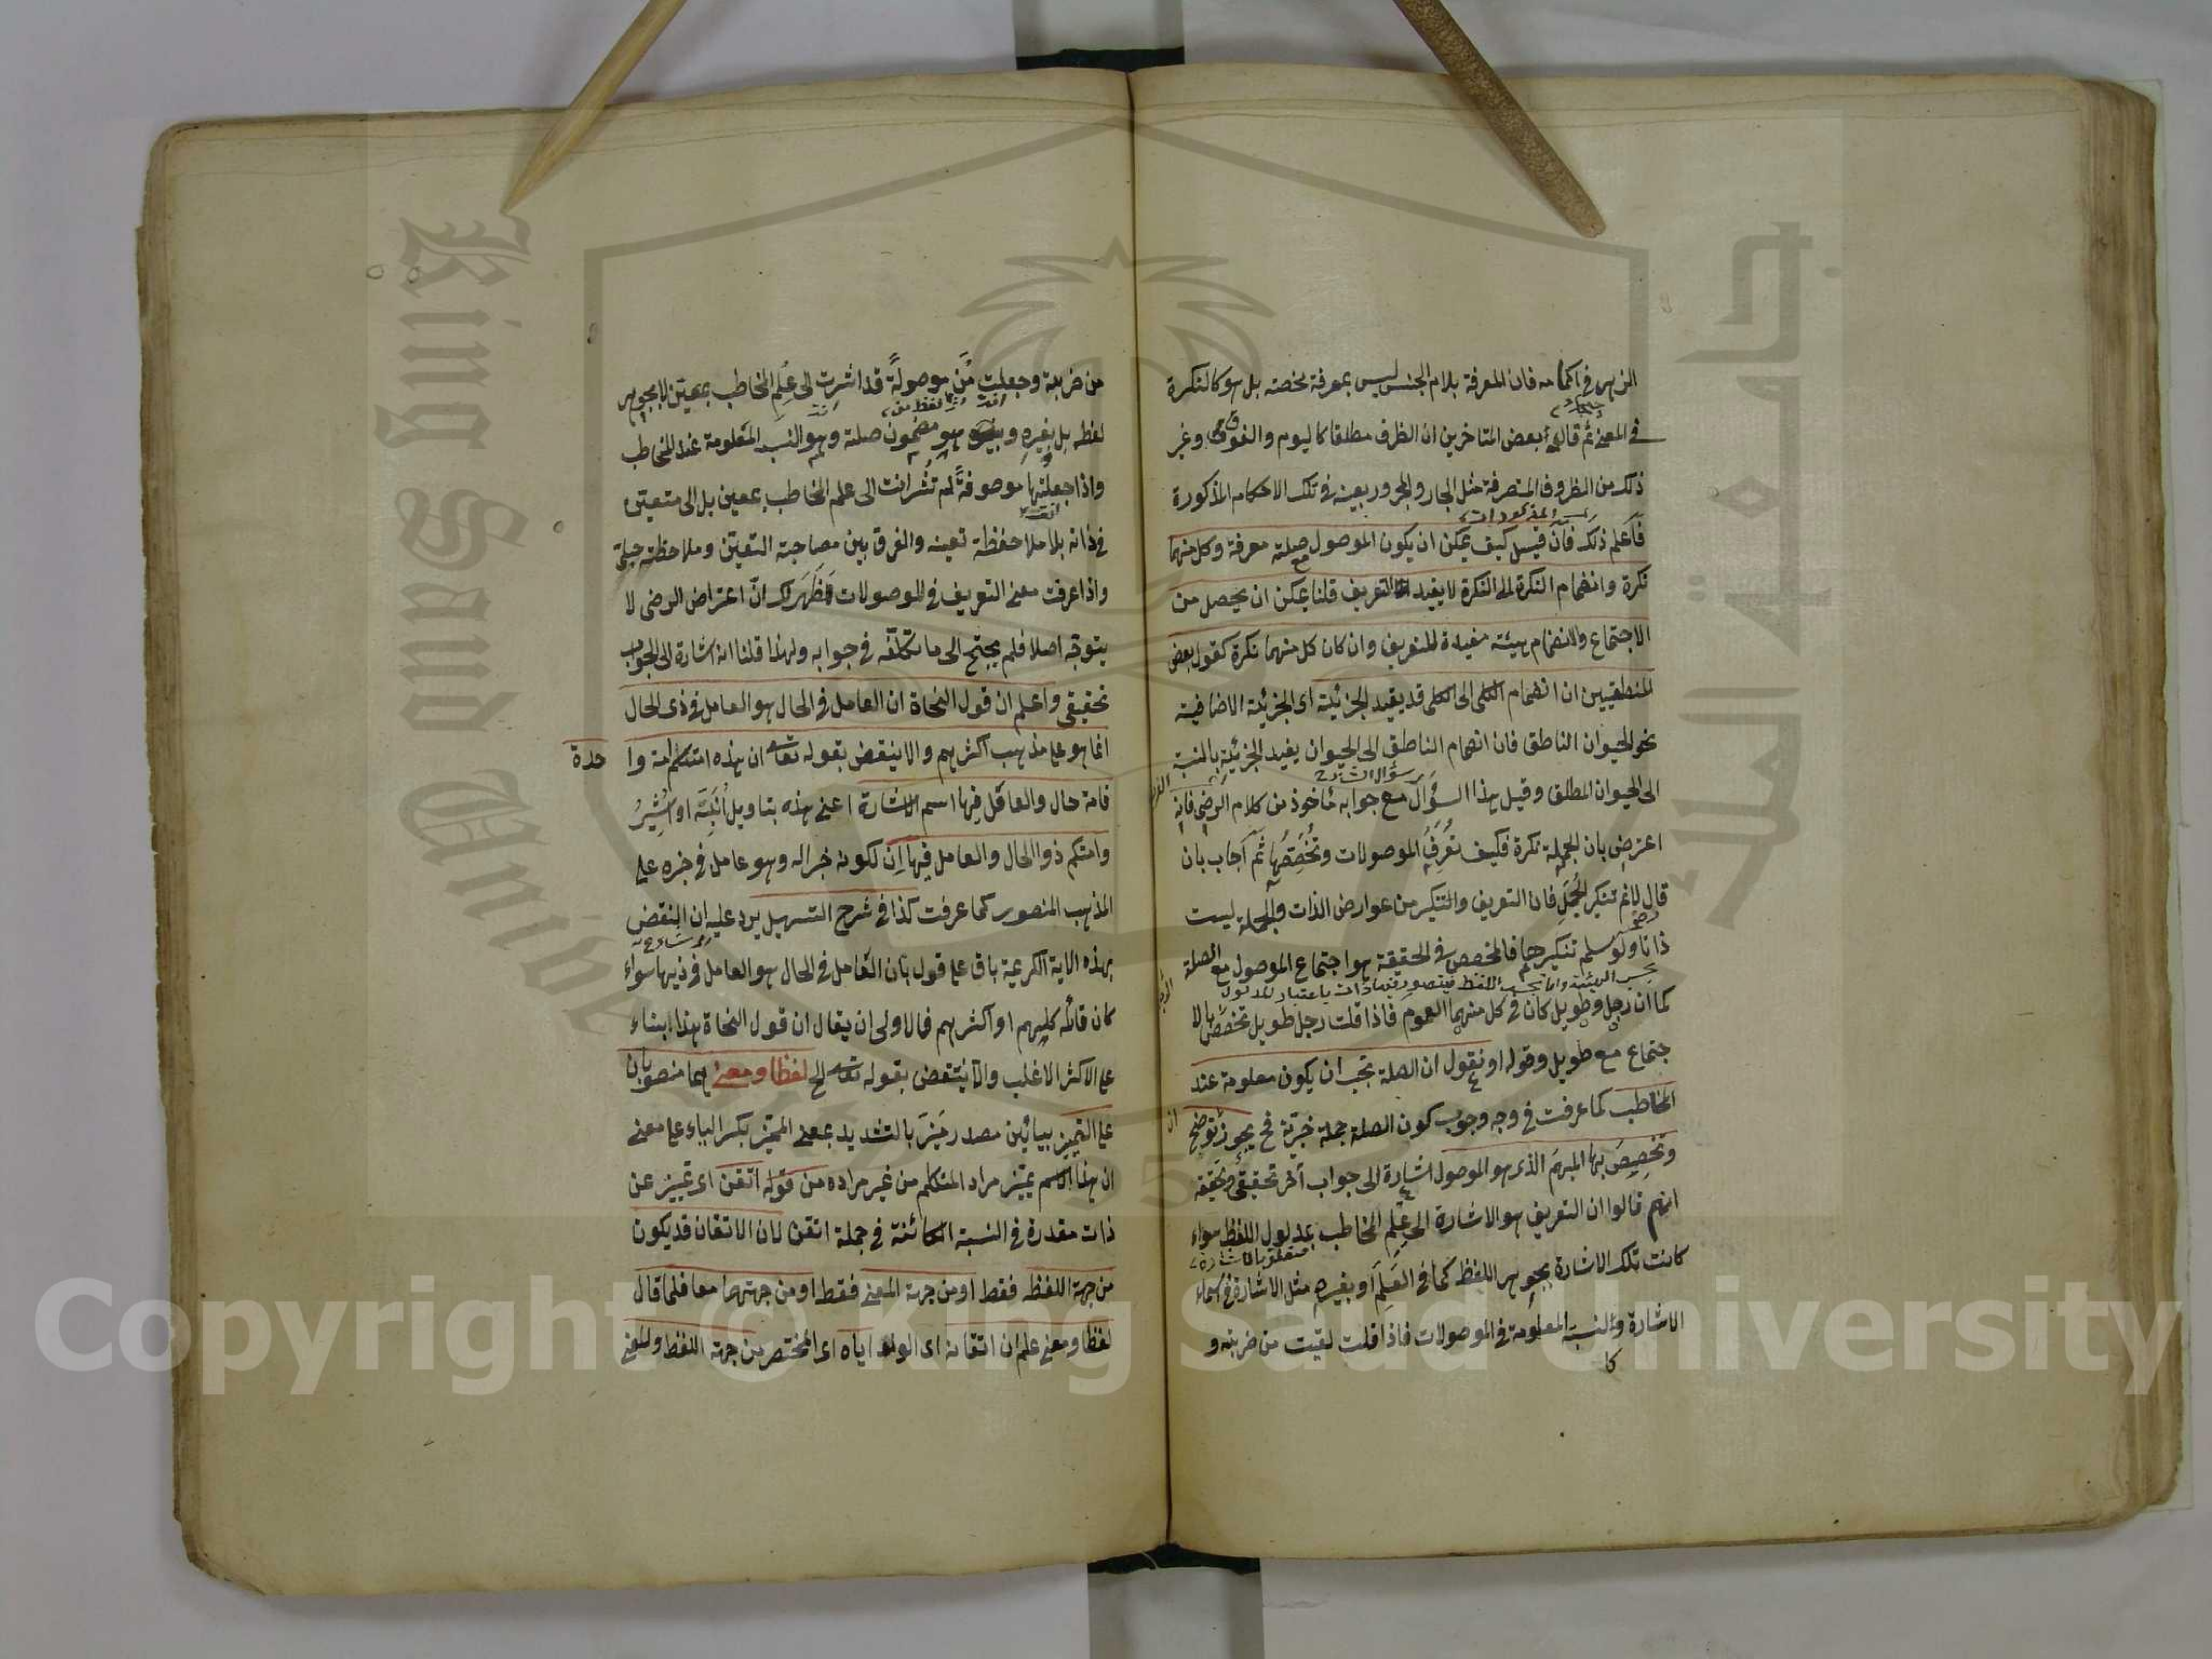 الزهر في اكمامه فان المعرفة بلام الجنس ليس بمعرفة محضة بل هو كالنكرة
في المعنى ثم قال بعض المتاخرين ان الظرف مطلقا كاليوم والفوق وغير
ذلك من الظروف المتصرفة مثل الجار والمجرور بعينه في تلك الاحكام المذكورة
فاعلم ذلك فان قيل كيف يمكن ان يكون الموصول مع صلته معرفة وكل منهما
نكرة وانضمام النكرة الى النكرة لا يفيد التعريف قلنا يمكن ان يحصل من
الاجتماع والانضمام هيئة مفيدة للتعريف وان كان كل منهما نكرة كقول بعض
المنطقيين ان انضمام الكلى الى الكلى قد يفيد الجزئية اى الجزئية الاضافية
نحو الحيوان الناطق فان انضمام الناطق الى الحيوان يفيد الجزئية بالنسبة
الى الحيوان المطلق وقيل هذا السؤال مع جوابه مأخوذ من كلام الرضى فانه
اعترض بان الجملة نكرة فكيف تعرف الموصولات وتخصصها ثم اجاب بان
قال لا نم تنكير الجمل فان التعريف والتنكير من عوارض الذات والجملة ليست
ذاتا ولو سلم تنكيرها فالمخصص في الحقيقة هو اجتماع الموصول مع الصلة
كما ان رجل وطويل كان في كل منهما العموم فاذا قلت رجل طويل تخصص بالا
جتماع مع طويل وقوله او نقول ان الصلة تجب ان يكون معلومة عند
المخاطب كما عرفت في وجه وجوب كون الصلة جملة خبرية فح يجوز توضيح
وتخصيص بها المبهم الذى هو الموصول اشارة الى جواب آخر تحقيقى وتحقيقه
انهم قالوا ان التعريف هو الاشارة الى علم المخاطب بمدلول اللفظ سواء
كانت تلك الاشارة بجوهر اللفظ كما في العلم او بغيره مثل الاشارة في اسماء
متعلق بالاشارة
الاشارة والنسبة المعلومة في الموصولات فاذا قلت لقيت من ضربته و
من ضربته وجعلت من موصولة قد اشرت الى علم المخاطب بمعين لا بجوهر
لفظه بل بغيره وهو مضمون صلة وهو النسبة المعلومة عند المخاطب
واذا جعلتها موصوفة لم تشر انت الى علم المخاطب بمعين بل الى متعين
في ذاته بلا ملاحظة تعينه والفرق بين مصاحبة التعين وملاحظته جلى
واذا عرفت معنى التعريف في الموصولات فظهر لك ان اعتراض الرضى لا
يتوجه اصلا فلم يحتج الى ما تكلفه في جوابه ولهذا قلنا انه اشارة الى الجواب
تحقيقى واعلم ان قول النحاة ان العامل في الحال هو العامل في ذى الحال
انما هو على مذهب اكثرهم والا ينتقض بقوله تعالى ان هذه امتكم امة وا
حدة
فامة حال والعامل فيها اسم الاشارة اعنى هذه بتاويل انبه او اشير
وامتكم ذو الحال والعامل فيها ان لكونه خبرا له وهو عامل في خبره على
المذهب المنصور كما عرفت كذا في شرح التسهيل يرد عليه ان النقض
بهذه الاية الكريمة باق على قول بان العامل في الحال هو العامل في ذيها سواء
كان قائله كلهم او اكثرهم فالاولى ان يقال ان قول النحاة هذا ابتناء
على الاكثر الاغلب والا ينتقض بقوله تعالى الخ لفظا ومعنى هما منصوبان
على التمييز بيائين مصدر ميز بالتشديد بمعنى المميز بكسر الياء على معنى
ان هذا الاسم يميز مراد المتكلم من غير مراده من قوله اتقن اى تمييز عن
ذات مقدرة في النسبة الكائنة في جملة اتقن لان الاتقان قد يكون
من جهة اللفظ فقط او من جهة المعنى فقط او من جهتهما معا فلما قال
لفظا ومعنى علم ان اتقانه اى الولد اياه اى المختصر من جهة اللفظ والمعنى